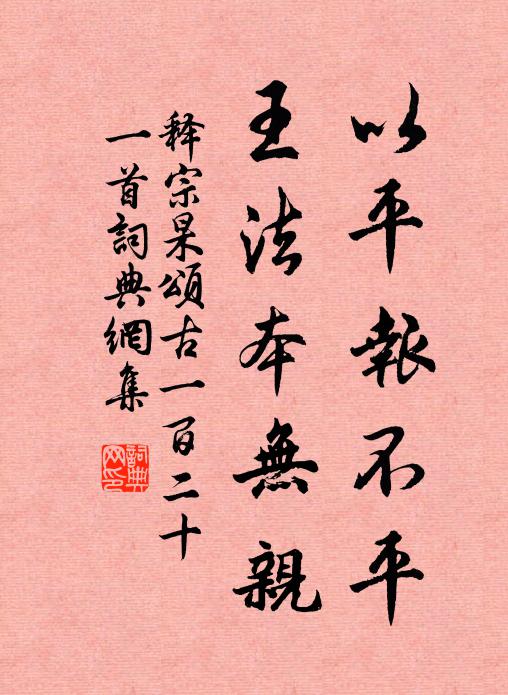 以平報不平
王法本無親
释宗杲頌古一百二十
一首詞典網集
詞典
网印